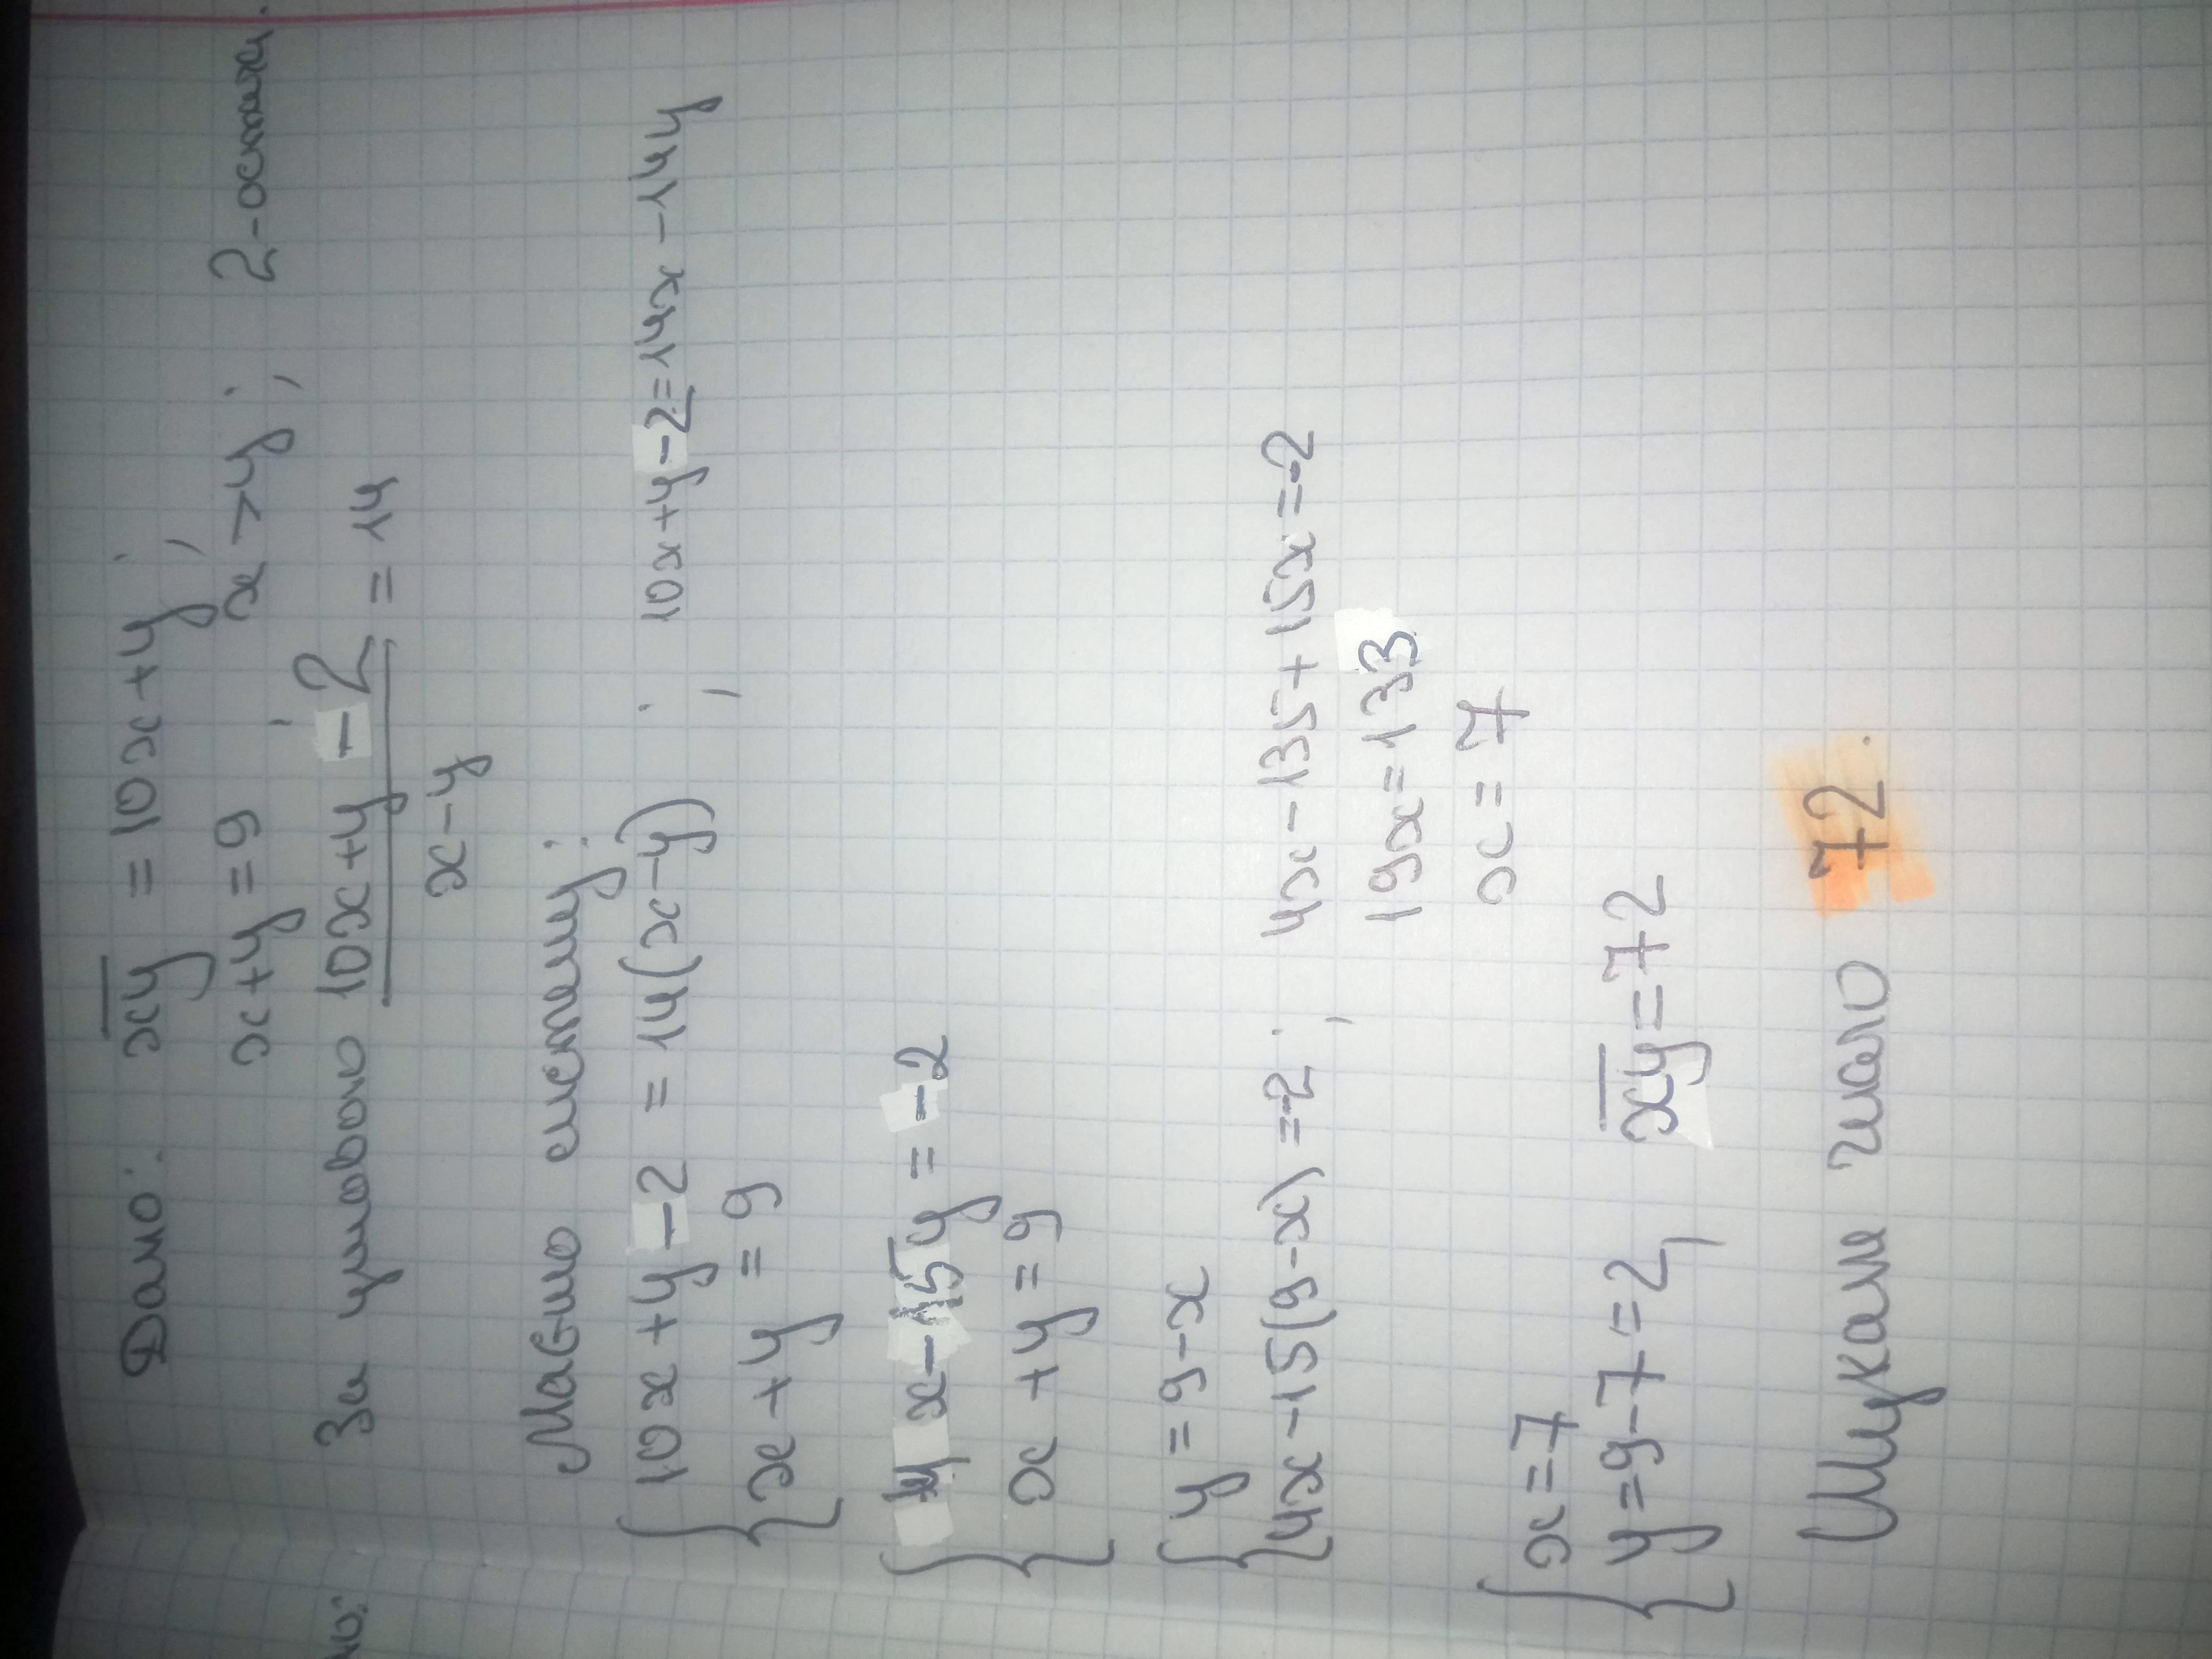 Дано: xy = 10x+y;
x+y=9; x>y; 2-остача.
За умовою 10x+y-2 = 14
x-y
Маємо систему:
{10x+y-2 = 14(x-y); 10x+y-2=14x-14y
x+y=9
{4x-15y=-2
x+y=9
{y=9-x
4x-15(9-x)=-2; 4x-135+15x=-2
19x=133
x=7
{x=7
y=9-7=2, xy=72
Шукане число 72.